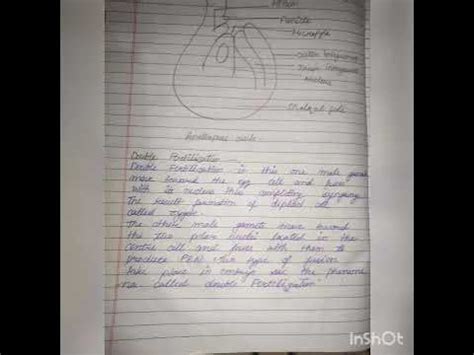 Hilum
Funicle
Micropyle
Outer Integument
Inner Integument
nucellus
Chalazal pole
Double Fertilization
Double Fertilization in this one male gamete
move toward the egg cell and fuses
with its nucleus this completing syngamy
The result formation of diploid cell
called zygote.
The other male gamete move toward
the two polar nuclei located in the
central cell and fuses with them to
produce PEN this type of fusion
take place in embryo sac the phenome
na called double Fertilization
InShOt